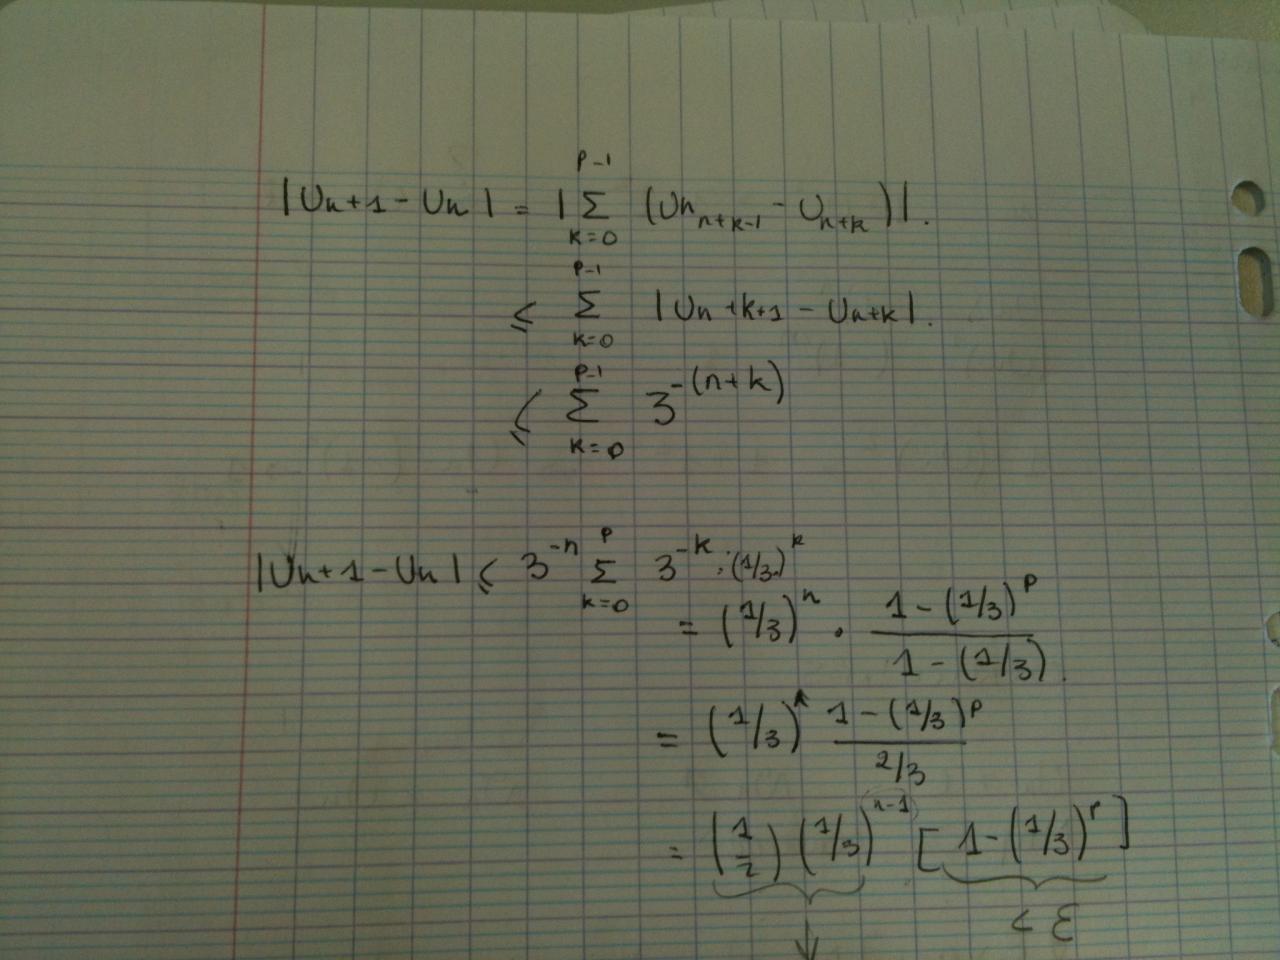 |Un+1 - Un| = |Σ_{k=0}^{p-1} (Un_{n+k-1} - U_{n+k})|.
≤ Σ_{k=0}^{p-1} |Un+k+1 - Un+k|.
≤ Σ_{k=0}^{p-1} 3^{-(n+k)}
|Un+1 - Un| ≤ 3^{-n} Σ_{k=0}^{p} 3^{-k} : (1/3)^k
= (1/3)^n · (1-(1/3)^p)/(1-(1/3)).
= (1/3)^n (1-(1/3)^p)/(2/3)
= (1/2) (1/3)^{n-1} [1-(1/3)^p]
↓ < ε